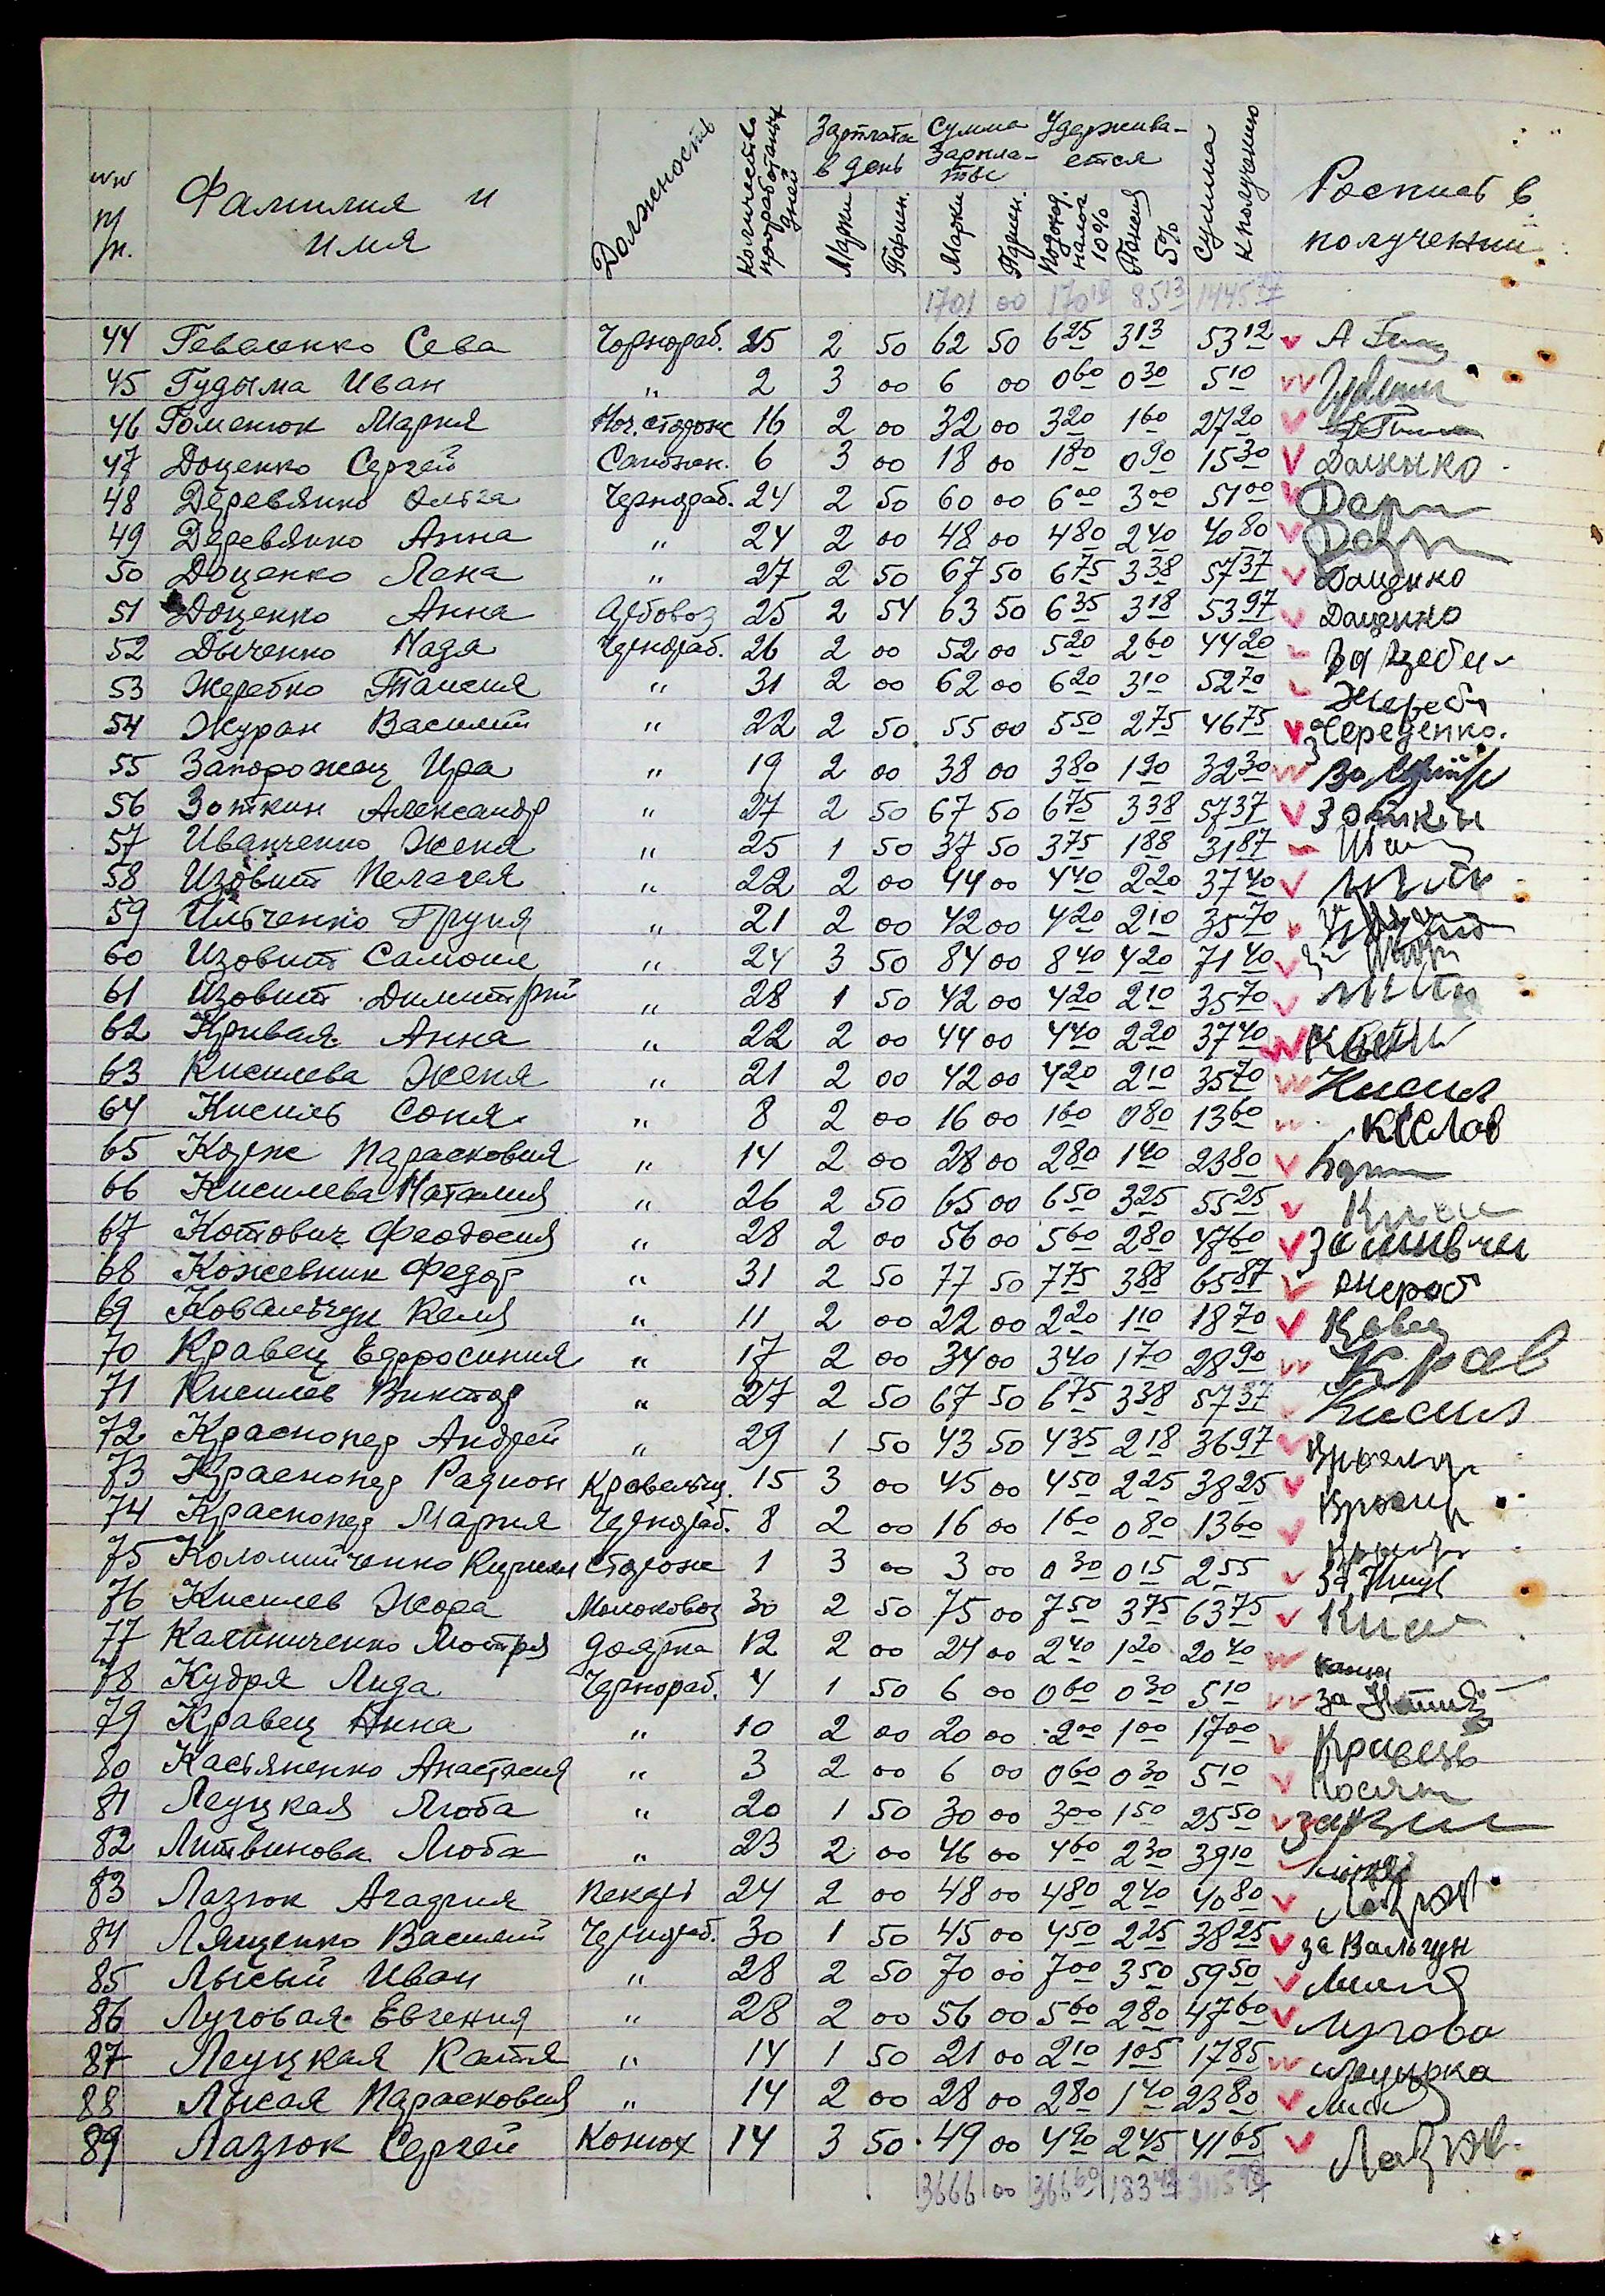 №№ п/п. Фамилия и имя Должность Количество проработаных дней Зарплата в день Марки Пфенн. Сумма зарплаты Марки Пфенн. Удерживается Подоход. налог 10% Пенсия 5% Сумма к получению Роспись в получении
1701 00 170 10 85 13 1445 77
44 Геваленко Сева Чернораб. 25 2 50 62 50 6 25 3 13 53 12
45 Гудыма Иван " 2 3 00 6 00 0 60 0 30 5 10
46 Гоменюк Мария Ноч. сторож 16 2 00 32 00 3 20 1 60 27 20
47 Доценко Сергей Сапожн. 6 3 00 18 00 1 80 0 90 15 30 Даценко
48 Деревянко Ольга Чернораб. 24 2 50 60 00 6 00 3 00 51 00
49 Деревянко Анна " 24 2 00 48 00 4 80 2 40 40 80
50 Доценко Лена " 27 2 50 67 50 6 75 3 38 57 37 Даценко
51 Доценко Анна Арбовоз 25 2 54 63 50 6 35 3 18 53 97 Даценко
52 Дыченко Надя Чернораб. 26 2 00 52 00 5 20 2 60 44 20
53 Жеребко Таисия " 31 2 00 62 00 6 20 3 10 52 70
54 Журан Василий " 22 2 50 55 00 5 50 2 75 46 75 Череденко.
55 Запорожец Ира " 19 2 00 38 00 3 80 1 90 32 30
56 Зоткин Александр " 27 2 50 67 50 6 75 3 38 57 37 Зоткин
57 Иванченко Женя " 25 1 50 37 50 3 75 1 88 31 87
58 Изовит Пелагея " 22 2 00 44 00 4 40 2 20 37 40
59 Ильченко Груня " 21 2 00 42 00 4 20 2 10 35 70
60 Изовит Самоил " 24 3 50 84 00 8 40 4 20 71 40
61 Изовит Димитрий " 28 1 50 42 00 4 20 2 10 35 70
62 Кривая Анна " 22 2 00 44 00 4 40 2 20 37 40
63 Кисилева Женя " 21 2 00 42 00 4 20 2 10 35 70
64 Кисиль Соня " 8 2 00 16 00 1 60 0 80 13 60
65 Корж Парасковия " 14 2 00 28 00 2 80 1 40 23 80
66 Кисилева Наталия " 26 2 50 65 00 6 50 3 25 55 25
67 Котович Феодосия " 28 2 00 56 00 5 60 2 80 47 60
68 Кожевник Федор " 31 2 50 77 50 7 75 3 88 65 87
69 Ковальчук Келя " 11 2 00 22 00 2 20 1 10 18 70
70 Кравец Ефросиния " 17 2 00 34 00 3 40 1 70 28 90 Крав
71 Кисилев Виктор " 27 2 50 67 50 6 75 3 38 57 37
72 Краснопер Андрей " 29 1 50 43 50 4 35 2 18 36 97
73 Краснопер Радион Кровельщ. 15 3 00 45 00 4 50 2 25 38 25
74 Краснопер Мария Чернораб. 8 2 00 16 00 1 60 0 80 13 60
75 Коломийченко Кирилл Сторож 1 3 00 3 00 0 30 0 15 2 55
76 Кисилев Жора Молоковоз 30 2 50 75 00 7 50 3 75 63 75
77 Калиниченко Мотря доярка 12 2 00 24 00 2 40 1 20 20 40
78 Кудря Лида Чернораб. 4 1 50 6 00 0 60 0 30 5 10
79 Кравец Анна " 10 2 00 20 00 2 00 1 00 17 00 Кравець
80 Касьяненко Анастасия " 3 2 00 6 00 0 60 0 30 5 10
81 Леуцкая Люба " 20 1 50 30 00 3 00 1 50 25 50
82 Литвинова Люба " 23 2 00 46 00 4 60 2 30 39 10
83 Лазюк Агафия Пекарь 24 2 00 48 00 4 80 2 40 40 80
84 Лященко Василий Чернораб. 30 1 50 45 00 4 50 2 25 38 25 за Вальчук
85 Лысый Иван " 28 2 50 70 00 7 00 3 50 59 50
86 Луговая Евгения " 28 2 00 56 00 5 60 2 80 47 60 Лугова
87 Леуцкая Катя " 14 1 50 21 00 2 10 1 05 17 85
88 Лысая Парасковия " 14 2 00 28 00 2 80 1 40 23 80
89 Лазюк Сергей Конюх 14 3 50 49 00 4 90 2 45 41 65
3666 00 366 60